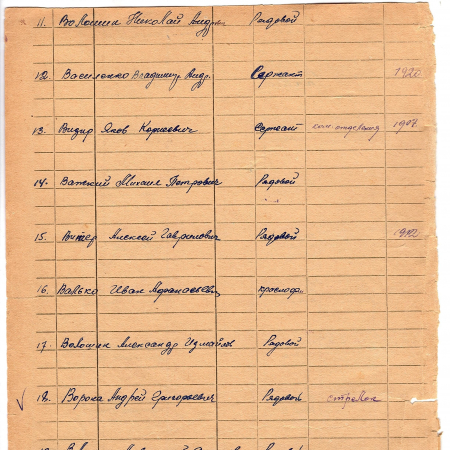 11. Волошин Николай Андреев. Рядовой
12. Василенко Владимир Андр. Сержант 1920
13. Визир Яков Корнеевич Сержант ком. отделения 1907
14. Важкий Михаил Петрович Рядовой
15. Витер Алексей Гаврилович Рядовой 1912
16. Валько Иван Афанасьевич красноф.
17. Волошин Александр Измайлов Рядовой
18. Ворона Андрей Григорьевич Рядовой стрелок